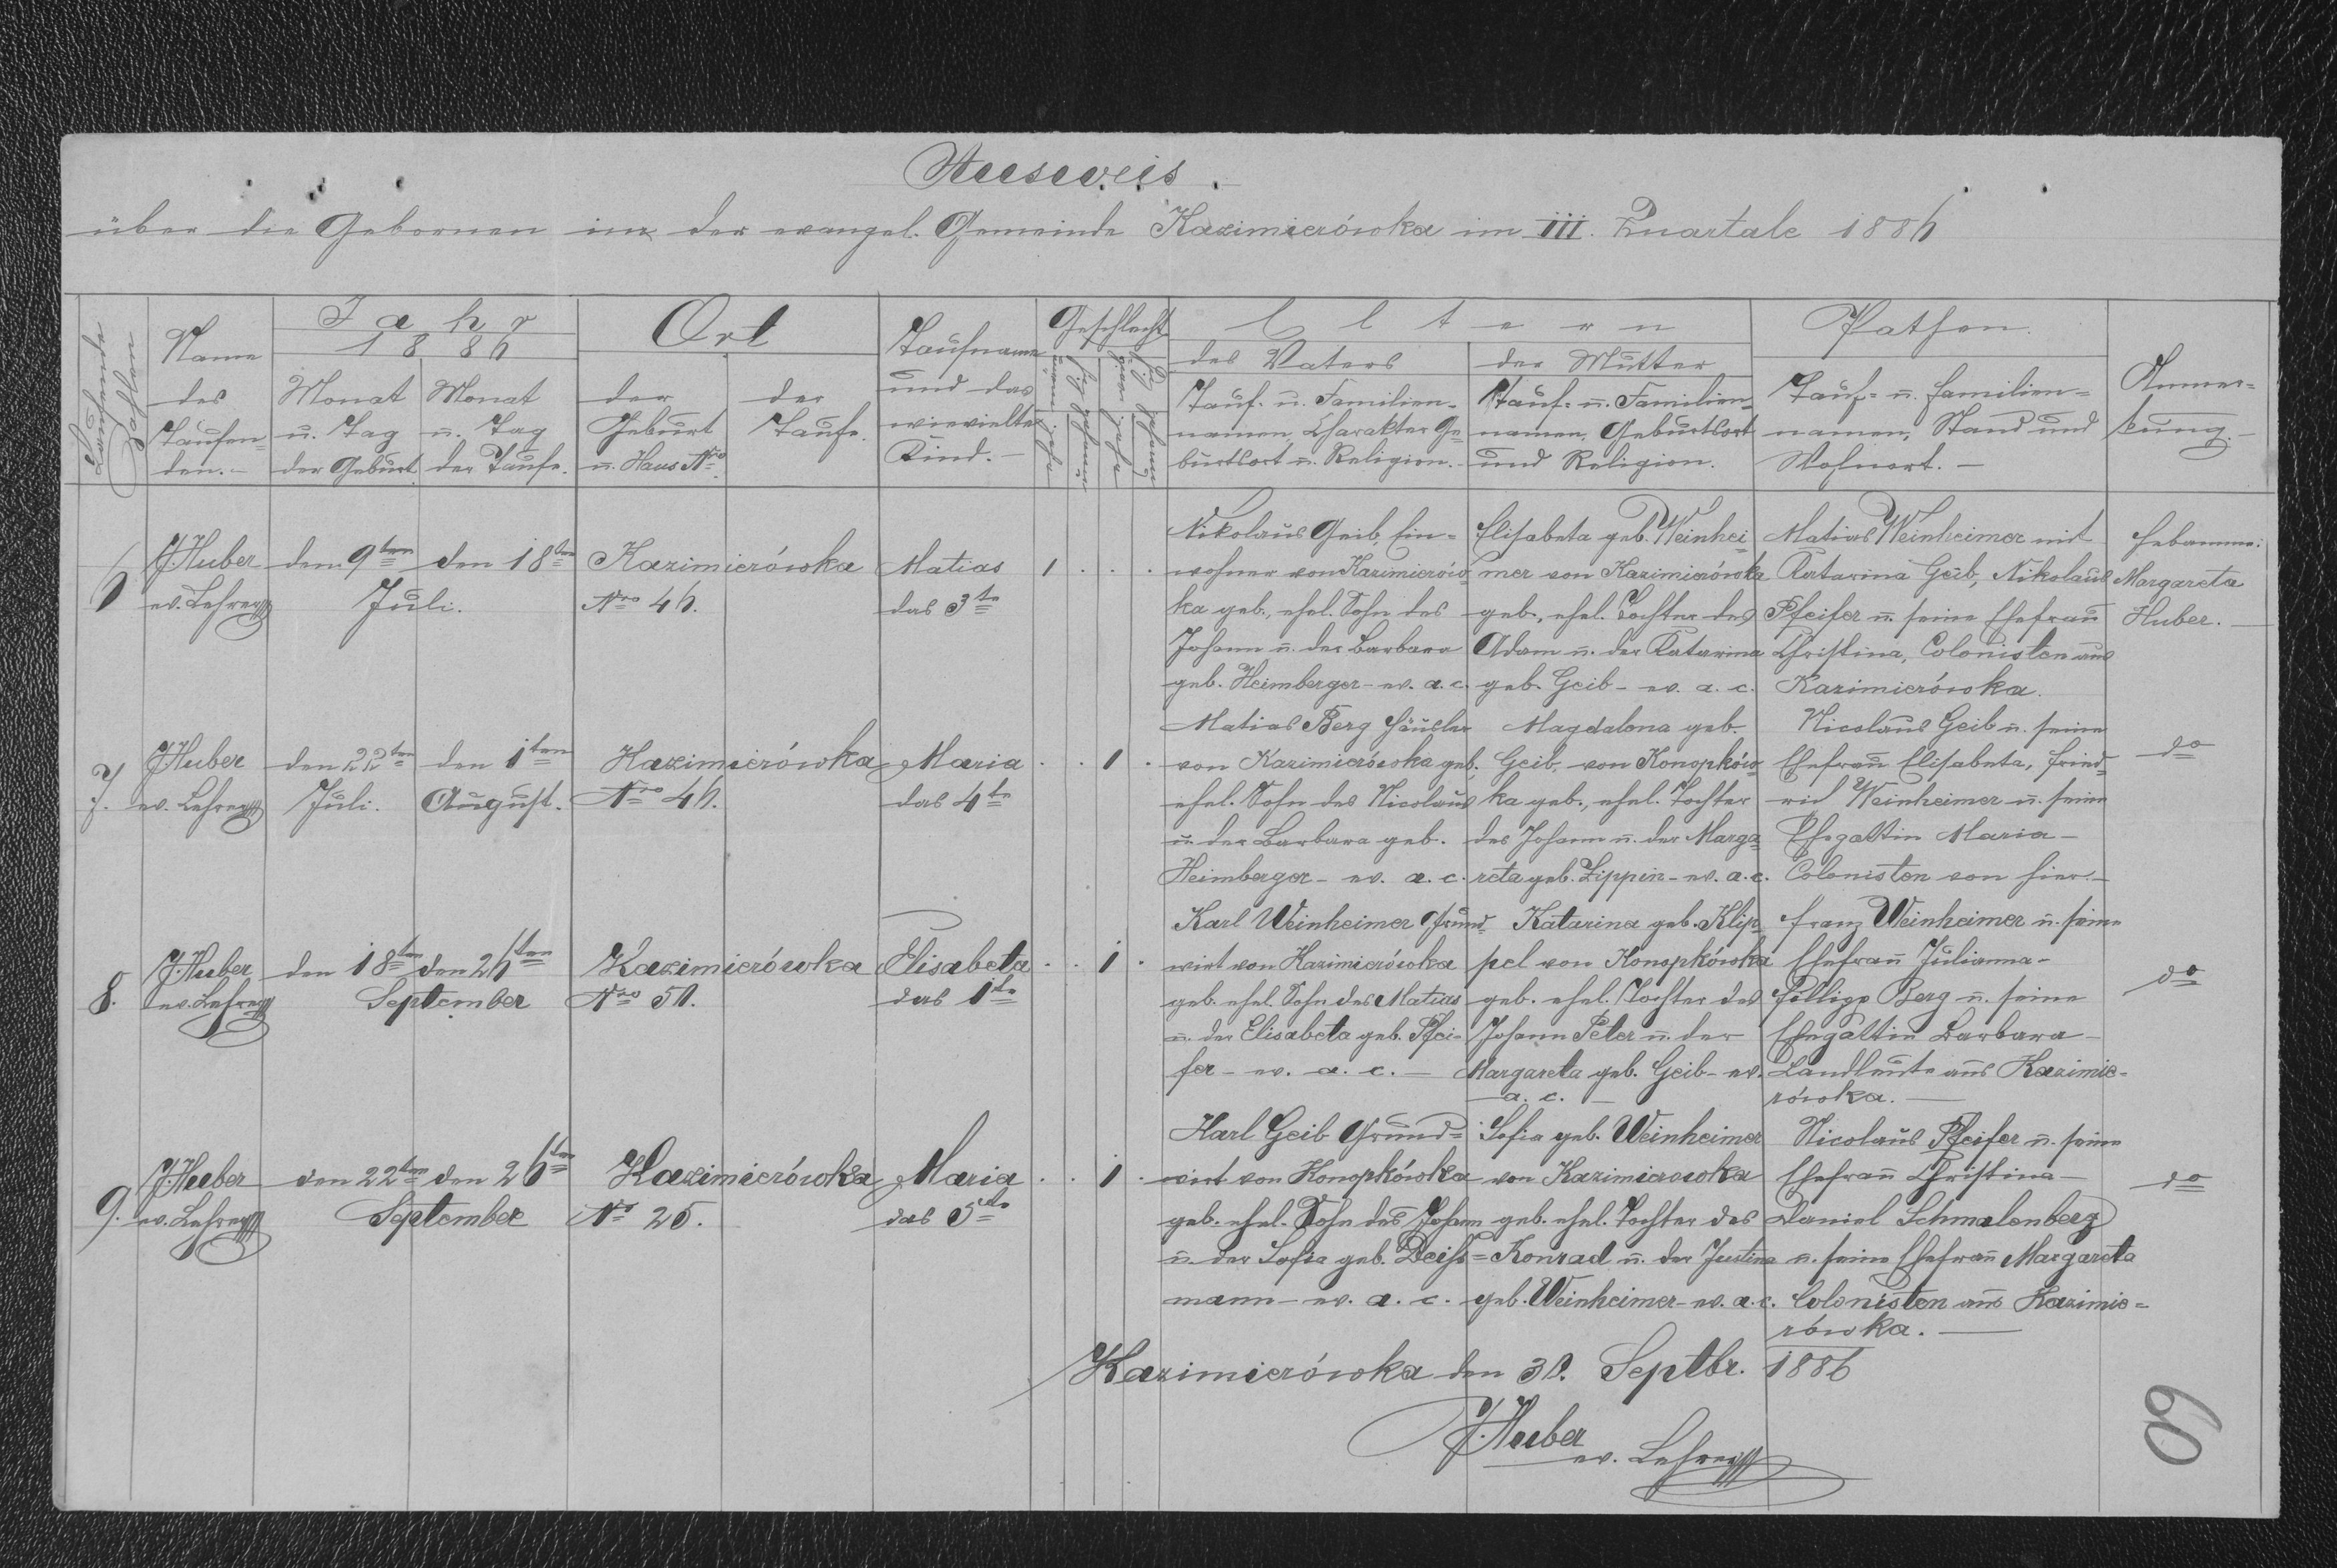 Ausweis.
über die Gebornen in der evangel. Gemeinde Kazimierówka im III. Quartale 1886
Laufende Postzahl
Name
des
Taufen-
den.-
Jahr
1886
Monat
u. Tag
der Geburt
Monat
u. Tag
der Taufe.
Ort
der
Geburt
u. Haus Nro
der
Taufe.
Taufname
und das
wievielte
Kind.-
Geschlecht
Eltern
des Vaters
Tauf- u. Familien-
namen, Charakter Ge-
burtsort u. Religion.-
der Mutter
Tauf- u. Familien-
namen, Geburtsort
und Religion.
Pathen.
Tauf- u. Familien-
namen, Stand und
Wohnort.-
Anmer-
kung.-
6
J. Huber
ev. Lehrer
den 9ten
den 18ten
Juli.
Kazimierówka
Nro 46.
Matias
das 3te
1 . . .
Nikolaus Geib, Ein-
wohner von Kazimierów-
ka geb., ehel. Sohn des
Johann u. der Barbara
geb. Heimberger - ev. a. c.
Elisabeta geb. Weinhei-
mer von Kazimierówka
geb., ehel. Tochter des
Adam u. der Katarina
geb. Geib - ev. a. c.
Matias Weinheimer mit
Katarina Geib, Nikolaus
Pfeifer u. seine Ehefrau
Christina, Colonisten aus
Kazimierówka.
Hebamme:
Margareta
Huber.-
7.
J. Huber
ev. Lehrer
den 22ten
Juli.
den 1ten
August.
Kazimierówka
Nro 46.
Maria
das 4te
. . 1 .
Matias Berg Häusler
von Kazimierówka geb.
ehel. Sohn des Nicolaus
u. der Barbara geb.
Heimberger - ev. a. c.
Magdalena geb.
Geib, von Konopków-
ka geb., ehel. Tochter
des Johann u. der Marga-
reta geb. Zippin - ev. a. c.
Nicolaus Geib u. seine
Ehefrau Elisabeta, Fried-
rich Weinheimer u. seine
Ehegattin Maria -
Colonisten von hier.-
do
8.
J. Huber
ev. Lehrer
den 18ten
den 26ten
September
Kazimierówka
Nro 50.
Elisabeta
das 1te
. . 1 .
Karl Weinheimer Grund-
wirt von Kazimierówka
geb. ehel. Sohn des Matias
u. der Elisabeta geb. Pfei-
fer - ev. a. c. -
Katarina geb. Klip-
pel von Konopkówka
geb. ehel. Tochter des
Johann Peter u. der
Margareta geb. Geib - ev.
a. c. -
Franz Weinheimer u. seine
Ehefrau Julianna -
Fillipp Berg u. seine
Ehegattin Barbara -
Landleute aus Kazimie-
rówka. -
do
9.
J. Huber
ev. Lehrer
den 22ten
den 26ten
September
Kazimierówka
Nro 25.
Maria
das 5te
. . 1 .
Karl Geib Grund-
wirt von Konopkówka
geb. ehel. Sohn des Johann
u. der Sofia geb. Deiß-
mann - ev. a. c.
Sofia geb. Weinheimer
von Kazimierowka
geb. ehel. Tochter des
Konrad u. der Justina
geb. Weinheimer - ev. a. c.
Nicolaus Pfeifer u. seine
Ehefrau Christina -
Daniel Schmalenberg
u. seine Ehefrau Margareta
Colonisten aus Kazimie-
rówka. -
do
Kazimierówka den 30. Septbr. 1886
J. Huber
ev. Lehrer